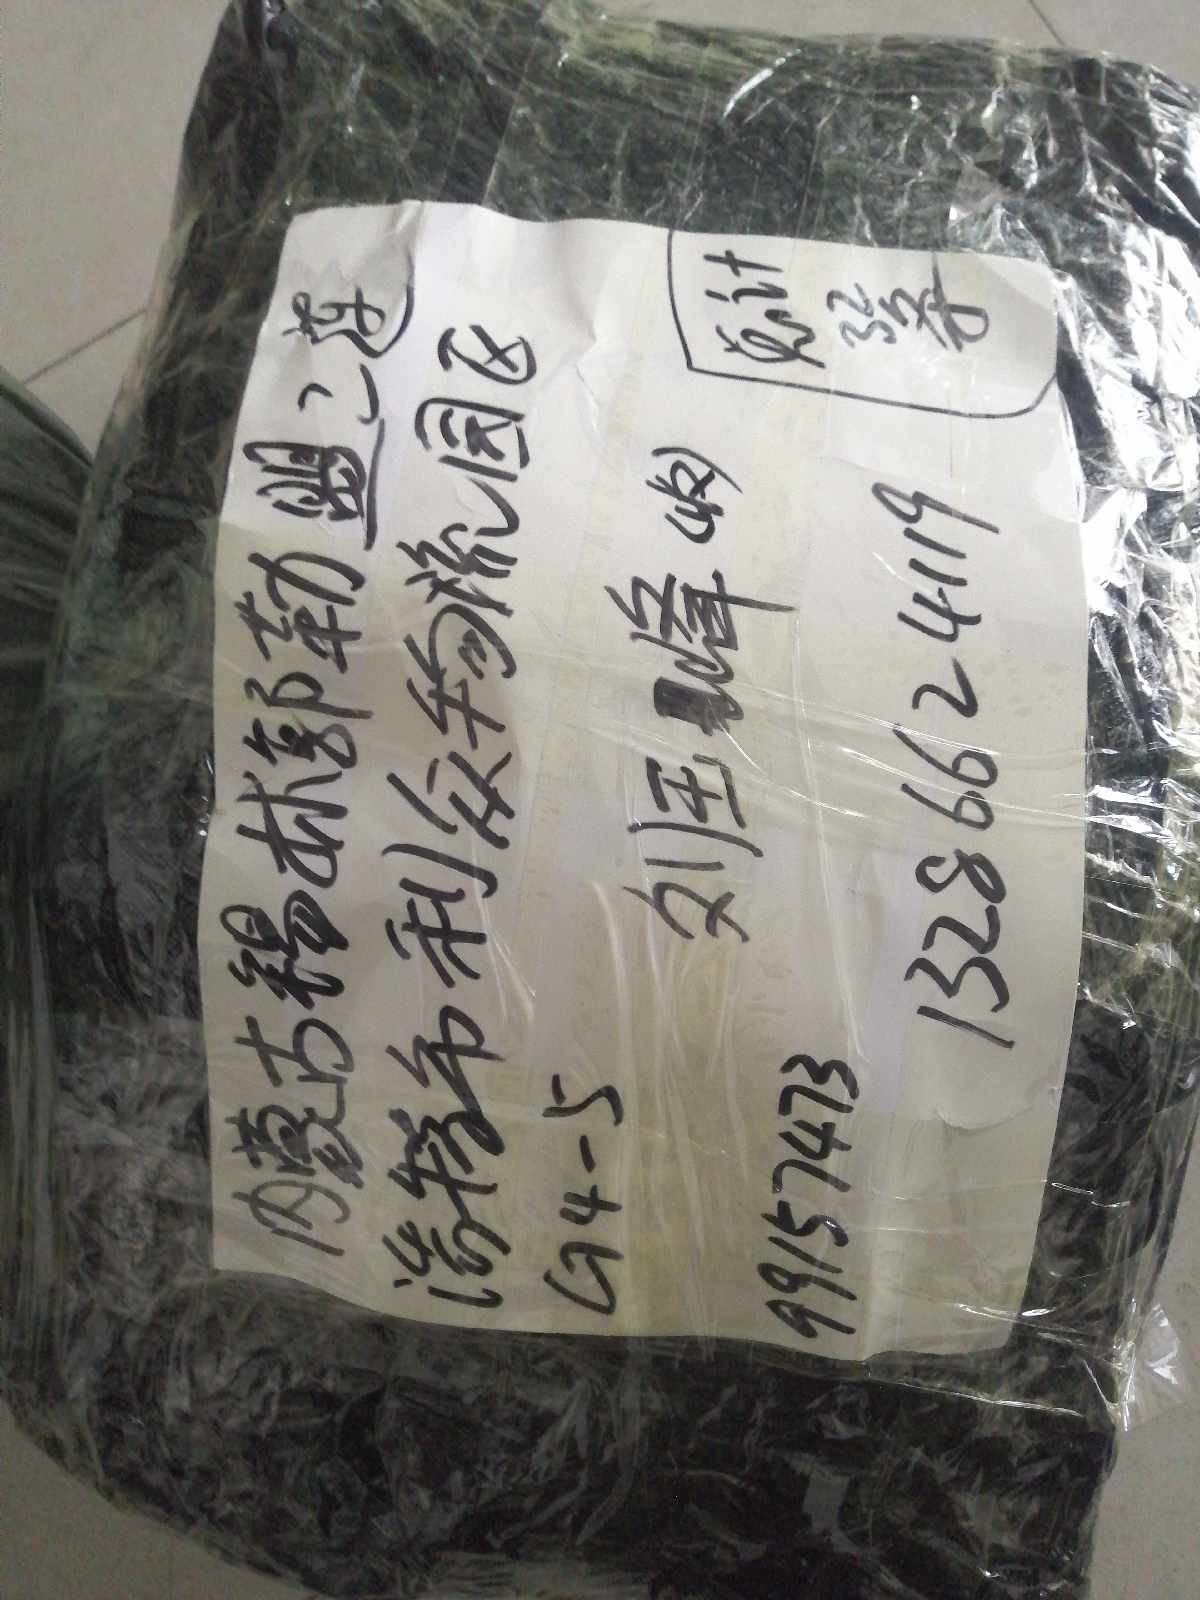 内蒙古锡林郭勒盟二连
浩特市利众物流园区
G4-5
刘玉峰(收)
总计
32号
99157473
13286624119